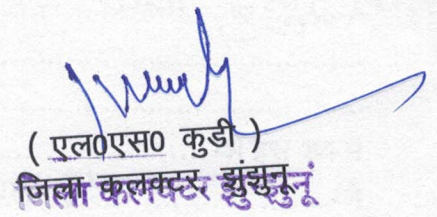 ( एल0एस0 कुडी )
जिला कलक्टर, झुंझुनू
जिला कलक्टर झुंझुनूं